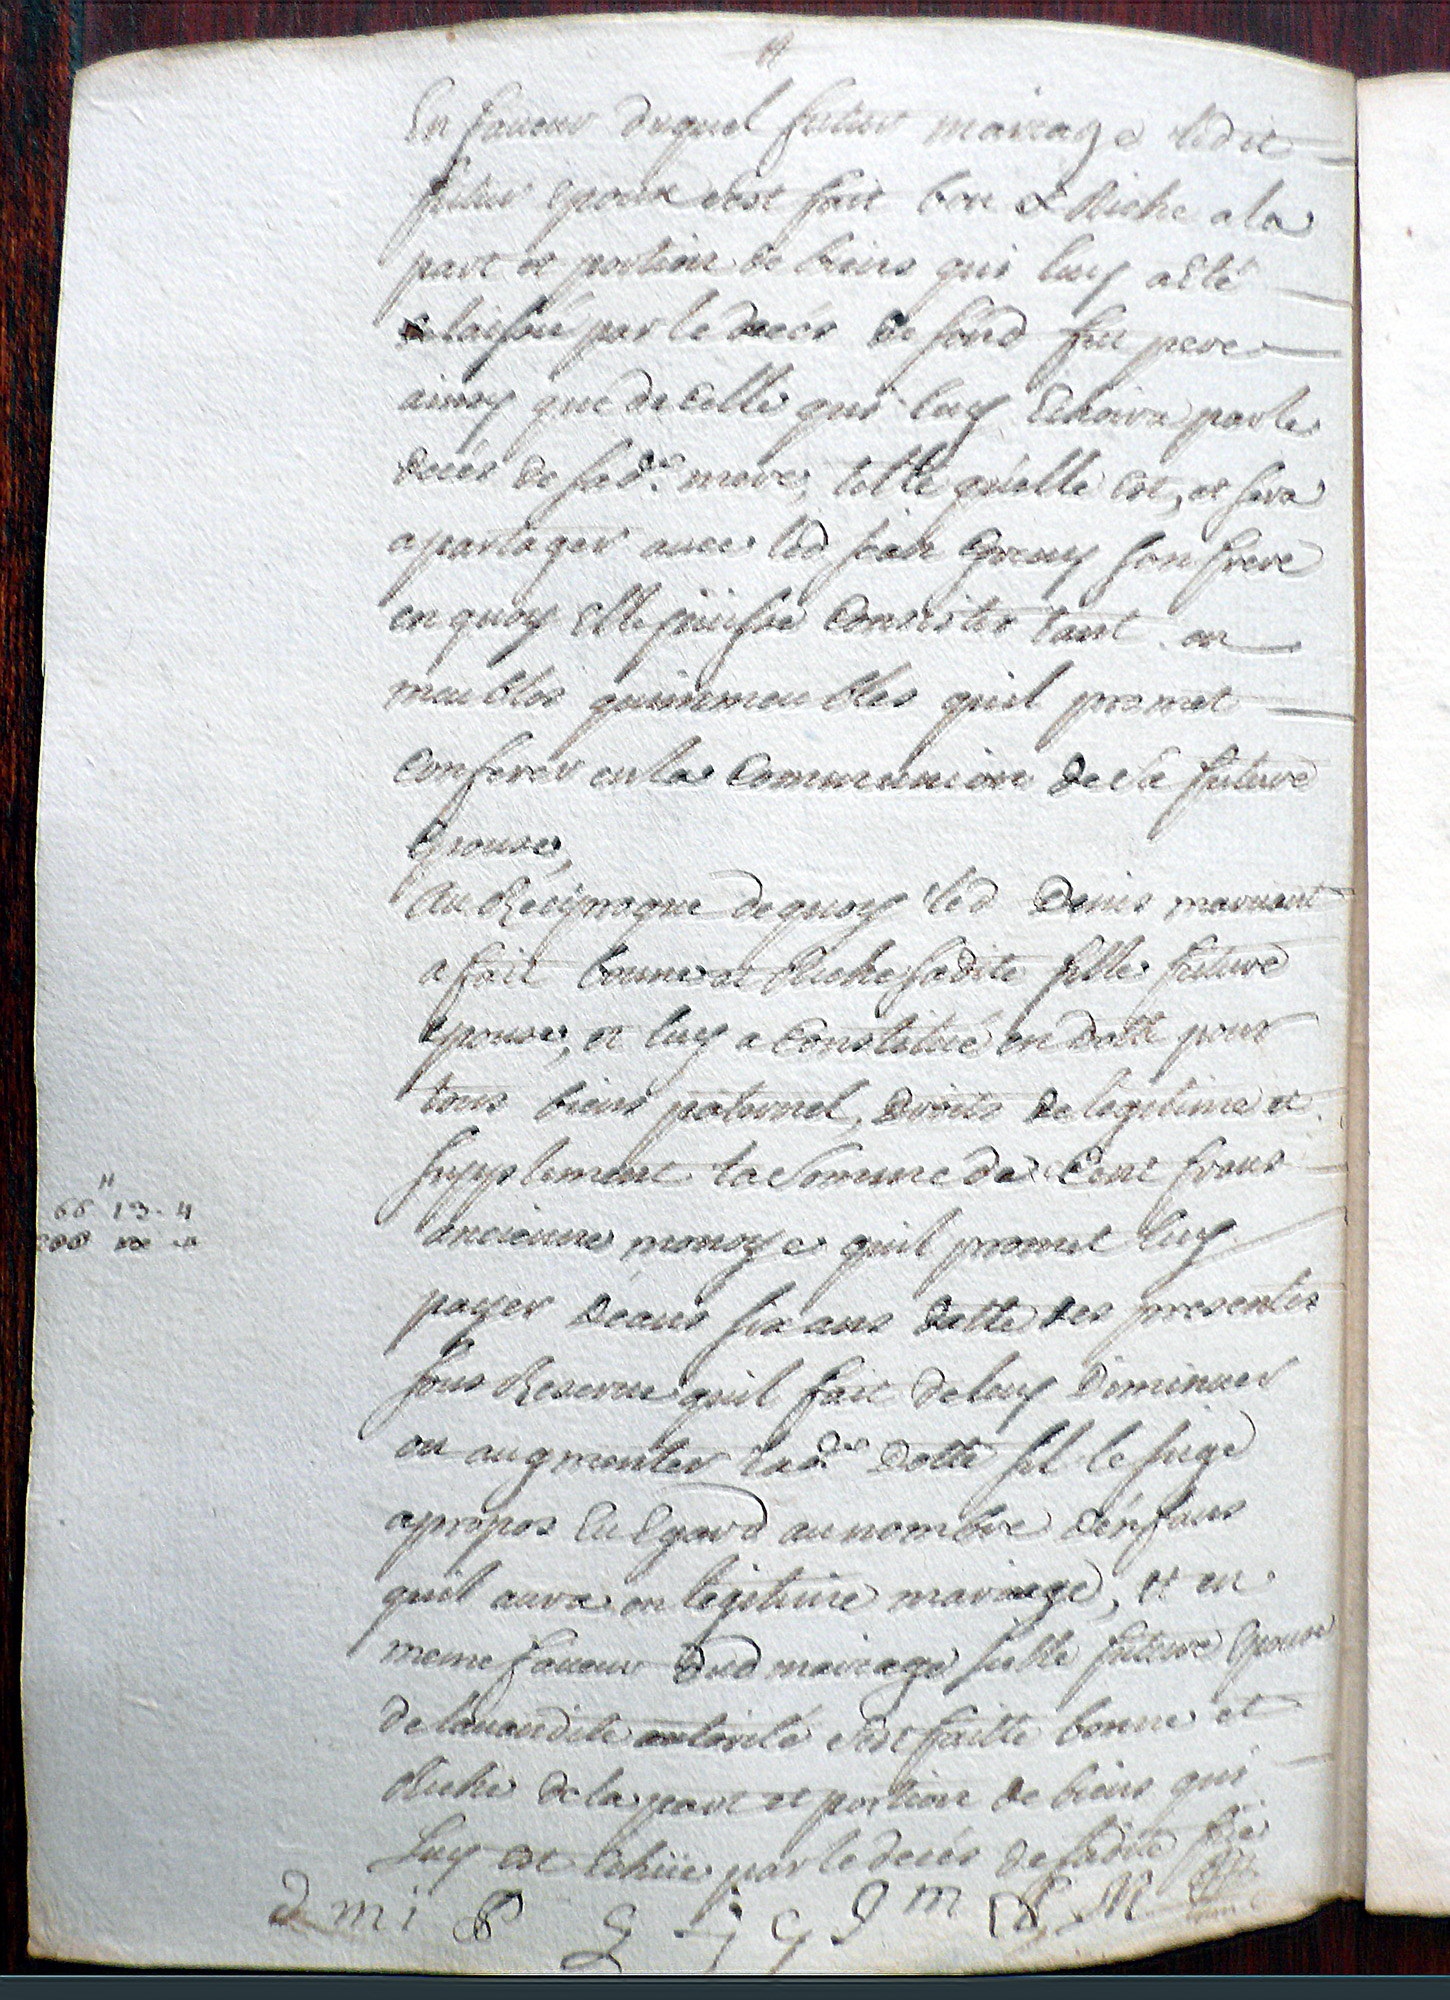 En faueur duquel futur mariage ledit
futur epoux s'est fait bon & Riche a la
part et portion de biens qui luy a Eté
delaissée par le decés de sond feu pere
ainsy que de celle qui luy Echoira par le
decés de sad.e mere, telle qu'elle est, et sera
a partager auec led jean son frere
en quoy Elle puisse Consister tant en
meubles qu'immeubles qu'il promet
conferer en la Communion de sa future
Epouse,
Au Réciproque de quoy led Denis
a fait bonne et Riche sadite fille future
epouse, et luy a Constitué en dotte pour
tous biens paternel, droits de legitime et
supplement la somme de Cent frans
ancienne monoye quil promet luy
66 13. 4
payer dicans six ans datte des presentes
sous Reserue quil fait de luy Diminuer
ou augmenter lad.e Dotte sil le juge
a propos Eu Egard au nombre d'enfans
quil aura en legitime mariage, et en
meme faueur dud mariage fille future Epouse
de lauandite autorité s'est faitte bonne et
Riche de la part et portion de biens qui
Luy est Echüe par le decés de ladite
D m i P G j G J m M